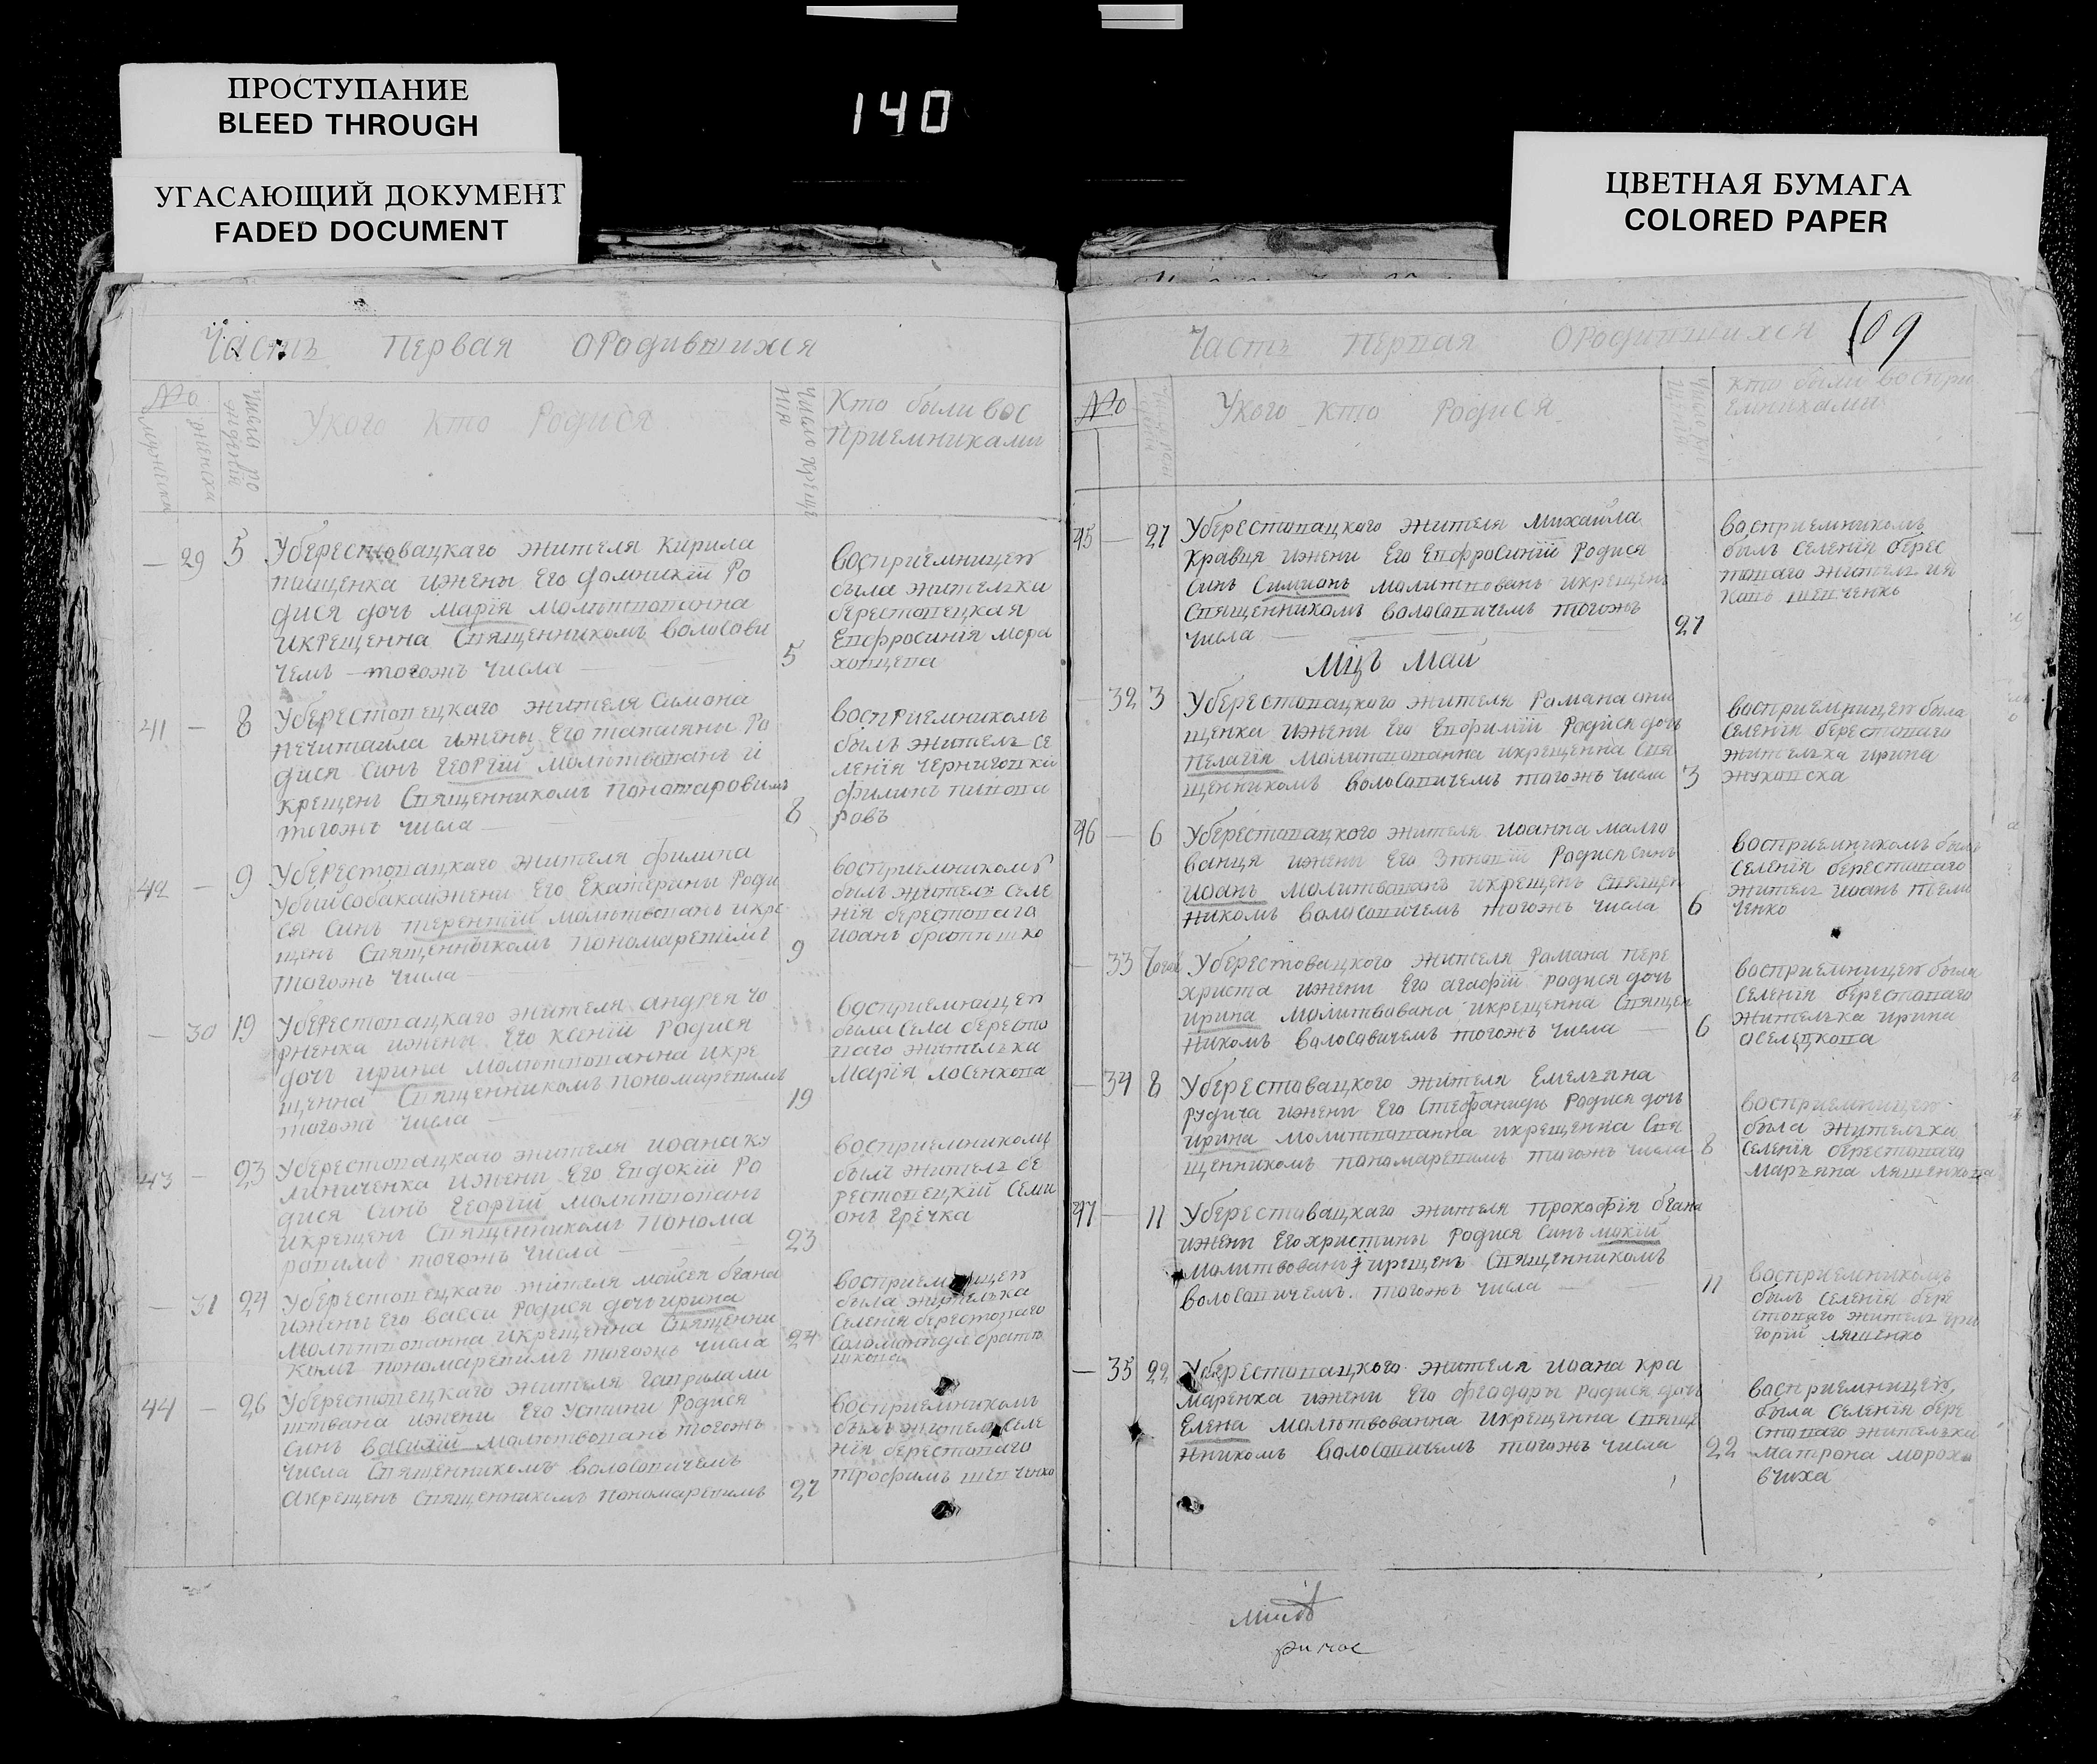 ПРОСТУПАНИЕ
BLEED THROUGH
УГАСАЮЩИЙ ДОКУМЕНТ
FADED DOCUMENT
140
ЦВЕТНАЯ БУМАГА
COLORED PAPER
Часть Первая ОРодившихся
№
Укого кто Родися
Кто были вос
приемниками
29 5 Уберестовацкаго жителя Кирила
ижены Его Домникіи Ро
дися дочь Марія Молитвованна
икрещенна Священникомъ Волосови
чемъ тогожъ числа 5
восприемницею
была жителька
берестовецкая
Епфросинія
41 8 Уберестовецкаго жителя Симона
нечитайла ижены Его татияни Ро
дися Синъ Георгій Молитвованъ и
крещенъ Священникомъ Пономаровимъ
тогожъ числа 8
восприемникомъ
былъ житель се
ленія Черниговки
Филипъ
42 9 Уберестовацкаго жителя Филипа
Убийсобакаижени Его Екатерины Роди
ся Синъ терентій Молитвованъ икре
щенъ Священникомъ Пономаревимъ
тогожъ числа 9
восприемникомъ
былъ житель селе
нія берестоваго
Иоанъ
30 19 Уберестовацкаго жителя андрея го
рненка ижены Его Ксеніи Родися
дочь ирина Молитвованна икре
щенна Священникомъ Пономаревимъ
тогожъ числа 19
восприемницею
была села бересто
ваго жителька
Марія Лосенкова
43 23 Уберестовацкаго жителя Иоана ку
линиченка ижени Его Евдокіи Ро
дися Синъ Георгій молитвованъ
икрещенъ Священникомъ Понома
ровимъ тогожъ числа 23
восприемникомъ
былъ житель бе
рестовецкій Семи
онъ Гречка
31 24 Уберестовецкаго жителя Мойсея
ижены Его васси Родися дочь ирина
Молитвованна икрещенна Священни
комъ Пономаревимъ тогожъ числа 24
была жителька
селенія берестоваго
44 26 Уберестовецкаго жителя Гаврила
ижени Его Устини Родися
синъ василій молитвованъ тогожъ
числа Священникомъ Волосовичемъ
акрещенъ Священникомъ Пономаревимъ 27
восприемникомъ
былъ житель селе
нія берестоваго
трофимъ шевченко
Часть Первая ОРодившихся 109
№
Укого кто Родися
кто были воспри
емниками
45 27 Уберестовацкого жителя Михайла
Кравця ижени Его Епфросиніи Родися
Синъ Симионъ молитвованъ икрещенъ
Священникомъ Волосовичемъ тогожъ
числа 27
восприемникомъ
былъ селенія берес
товаго житель
шевченко
Мцъ Май
32 3 Уберестовацкого жителя Романа они
щенка ижени Его Епфиміи Родися дочь
Пелагія Молитвованна икрещенна Свя
щенникомъ Волосовичемъ тогожъ числа 3
восприемницею была
селенія берестоваго
жителька ирина
46 6 Уберестовацкого жителя Иоанна малго
ванця ижени Его Родися синъ
иоанъ молитвованъ икрещенъ Священ
никомъ Волосовичемъ тогожъ числа 6
восприемникомъ былъ
селенія берестоваго
житель Иоанъ
33 Уберестовацкого жителя Романа пере
христа ижени Его агафіи родися дочь
ирина молитвована икрещенна Священ
никомъ Волосовичемъ тогожъ числа 6
восприемницею была
селенія берестоваго
жителька ирина
34 8 Уберестовацкого жителя Емельяна
рудича ижени Его Стефаниды Родися дочь
ирина молитвованна икрещенна Свя
щенникомъ пономаревимъ тогожъ числа 8
восприемницею
была жителька
селенія берестоваго
Маръяна Ляшенкова
47 11 Уберестовацкаго жителя Прокофія
ижени Его христины Родися Синъ мокій
молитвованъ Священникомъ
Волосовичемъ тогожъ числа 11
восприемникомъ
былъ селенія бере
стоваго житель гри
горій ляшенко
35 22 Уберестовацкого жителя Иоана кра
маренка ижени Его феодоры Родися дочь
Елена молитвованна икрещенна Свяще
нникомъ Волосовичемъ тогожъ числа 22
восприемницею
была селенія бере
стоваго жителька
матрона морохо
вчиха